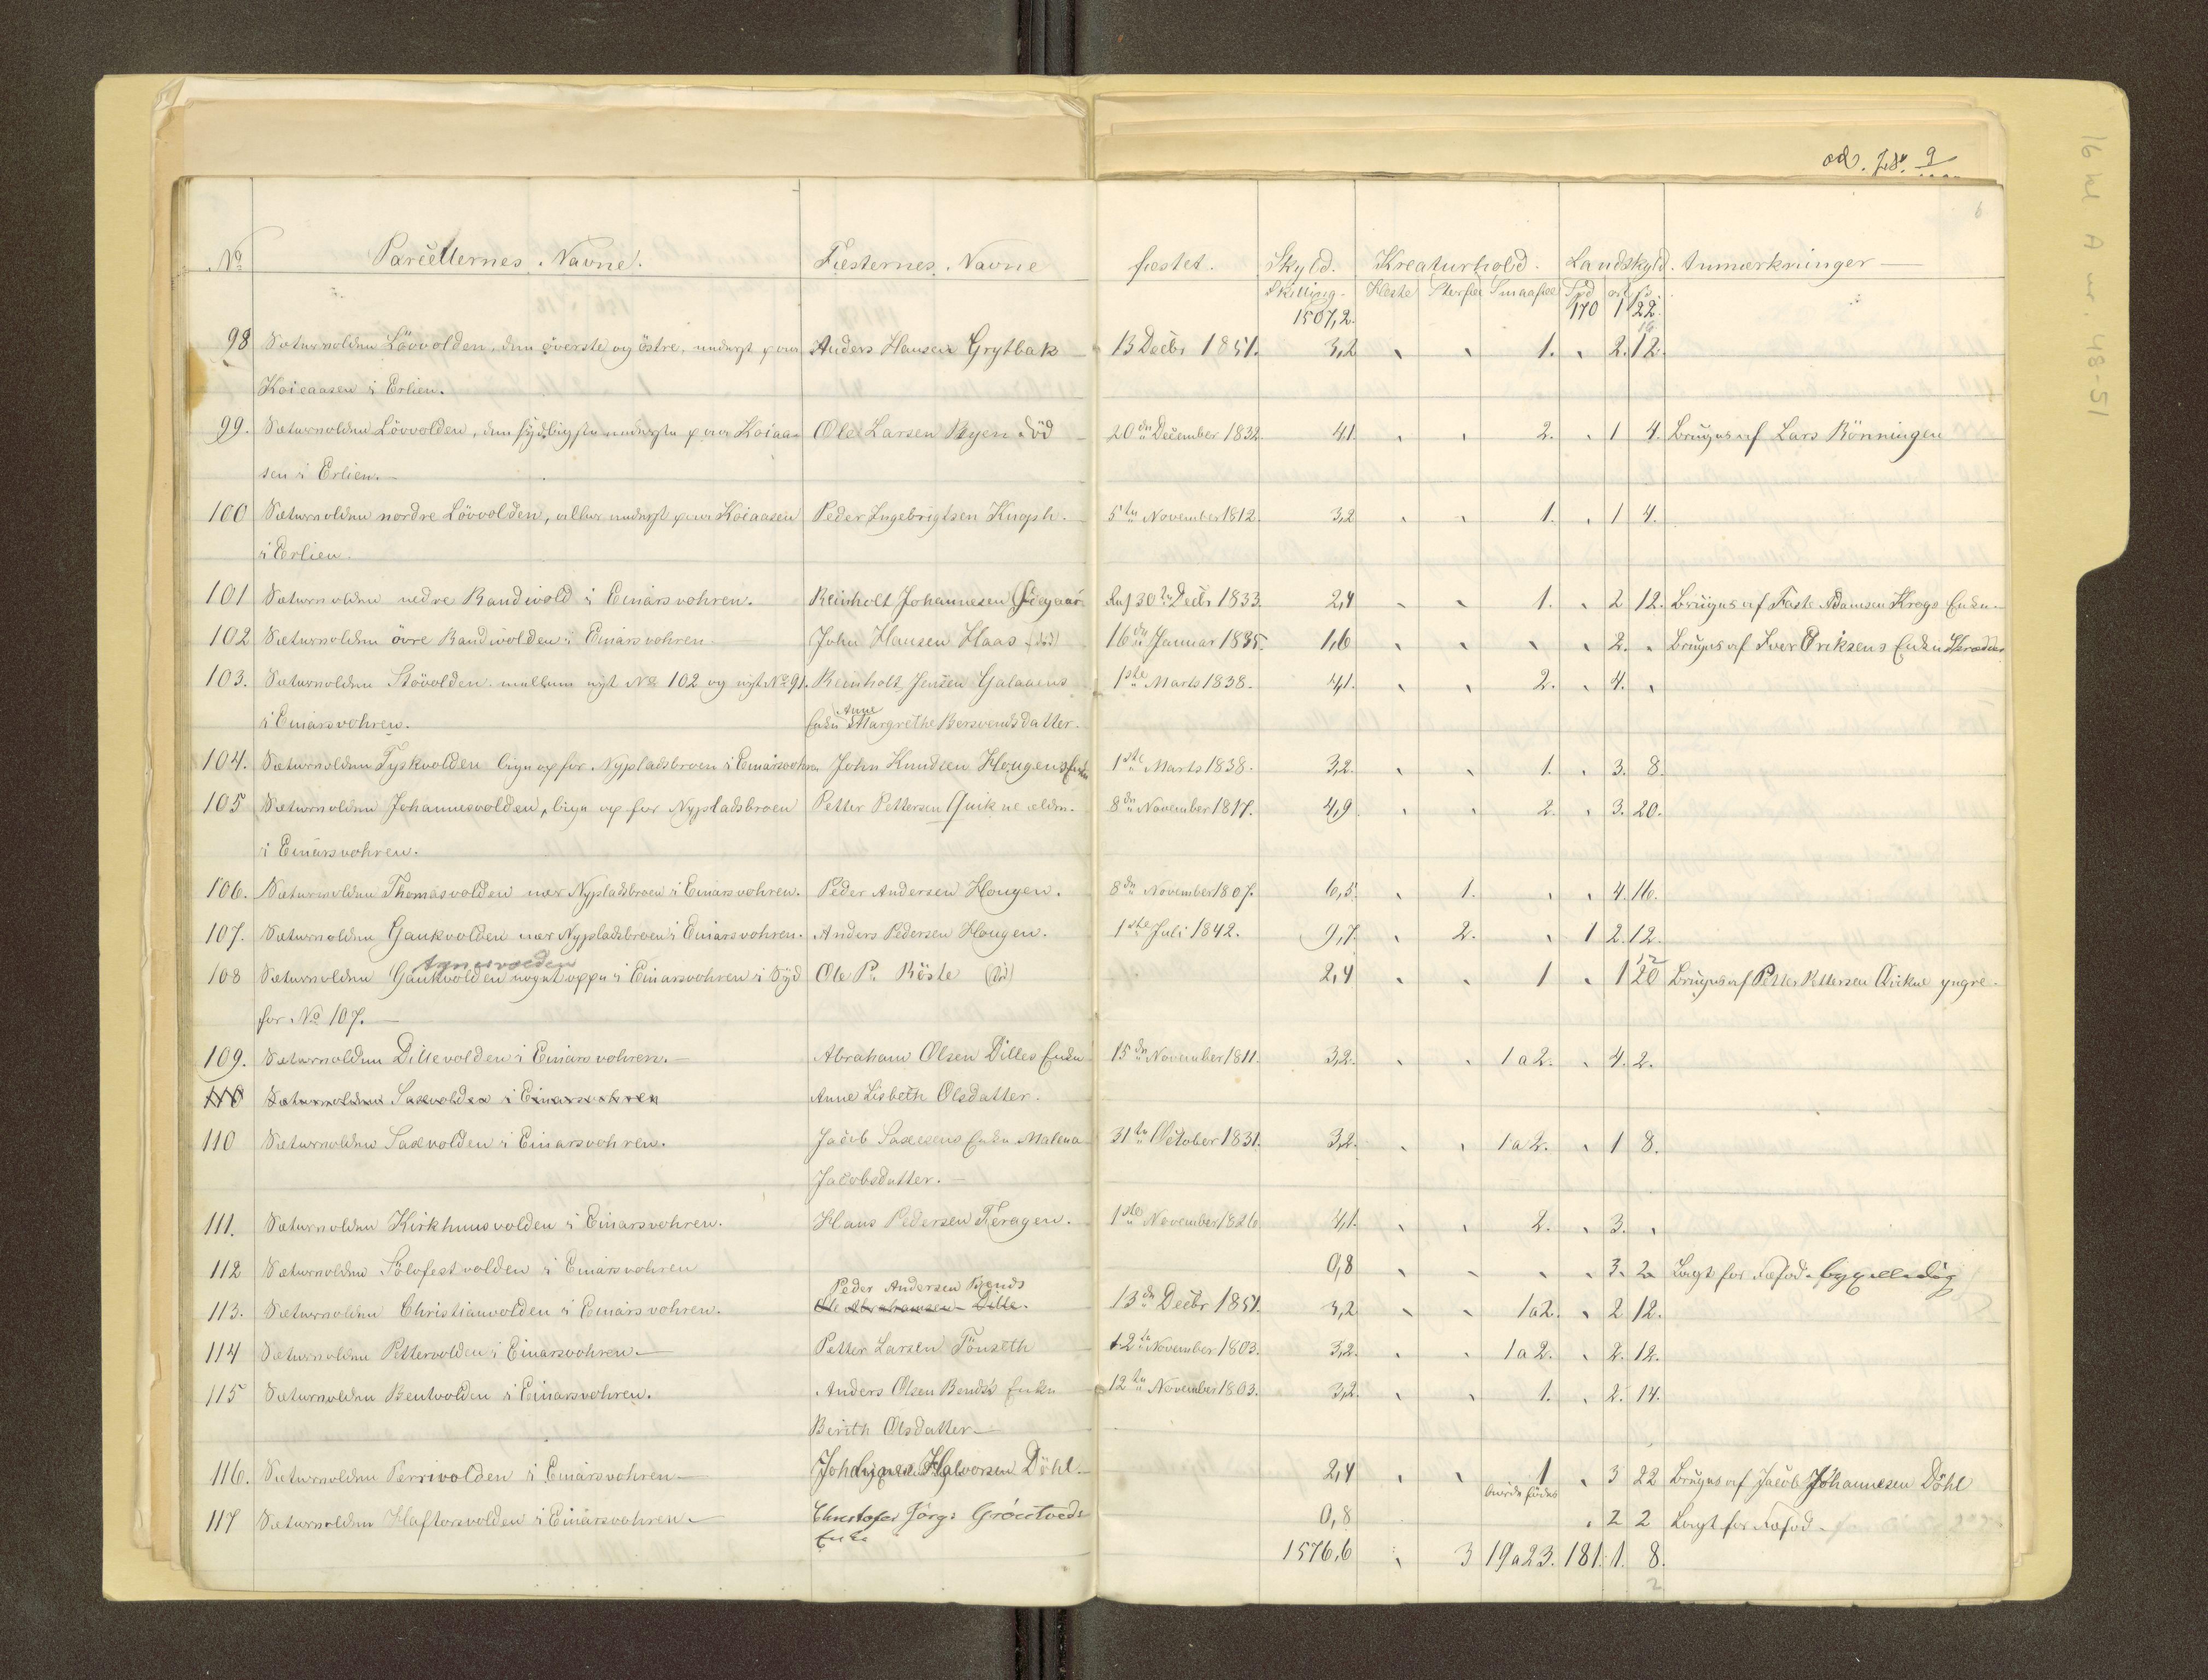 No Parcellernes Navne. Fæsternes Navne fæstet. Skyld. Kreaturhold. Landskyld. Anmærkninger
Skilling Heste Storfæ Smaafæ Spd ort s.
1507,2. 170 1 22
98 Sæturvolden Lövvolden, den överste og östre, Anders Hansen Grytbak 13 Decbr 1851. 3,2 " " 1. " 2. 12.
Koieaasen i Erlien.
99. Sæturvolden Lövvolden, den Koiaa- Ole Larsen Ryen död 20de December 1832 4,1 " " 2. " 1 4. Bruges af Lars Rönningen
sen i Erlien.
100 Sæturvolden nordre Lövvolden, Koiaasen Peder Ingebrigtsen Knoph. 5te November 1812. 3,2 " " 1. " 1 4.
i Erlien.
101 Sæturvolden nedre Randivold i Einarsvohren. Reinholt Johannesen 30te Decbr 1833. 2,4 " " 1. " 2 12. Bruges af Faste Adamsen Krogs Enke.
102 Sæturvolden övre Randivolden i Einarsvohren John Hansen Haas (död) 16de Januar 1835. 1,6 " " " " 2. " Bruges af Iver Eriksens Enke
103. Sæturvolden Stövolden mellem No 102 og No 91. Reinholt Jensen Galaaens 1ste Marts 1838. 4,1. " " 2. " 4. "
i Einarsvohren. Enke Anne Margrethe Bersvendsdatter.
104. Sæturvolden Tyskvolden lige op for Nypladsbroen i Einarsvohren John Knudsen Hougens Enke 1ste Marts 1838. 3,2. " " 1. " 3. 8.
105 Sæturvolden Johannesvolden, lige op for Nypladsbroen Petter Pettersen Quikne ældre. 8de November 1817. 4,9 " " 2. " 3. 20.
i Einarsvohren.
106. Sæturvolden Thomasvolden nær Nypladsbroen i Einarsvohren. Peder Andersen Hougen. 8de November 1807. 6,5 " 1. " " 4. 16.
107. Sæturvolden Gaukvolden nær Nypladsbroen i Einarsvohren. Anders Pedersen Hougen. 1ste Juli 1842. 9,7. " 2. " 1 2. 12.
108 Sæturvolden Gaukvolden noget oppe i Einarsvohren i Syd Ole Pr. Röste (död) 2,4 " " 1 " 1 20 Bruges af Petter Pettersen Qvikne yngre.
for No 107.
109. Sæturvolden Dillevolden i Einarsvohren. Abraham Olsen Dilles Enke 15de November 1811. 3,2. " " 1 a 2. " 4. 2.
110 Sæturvolden Saxevolden i Einarsvohren Anne Lisbeth Olsdatter.
110 Sæturvolden Saxevolden i Einarsvohren. Jacob Saxesens Enke Malena 31te October 1831. 3,2. " " 1 a 2. " 1 8.
Jacobsdatter.
111. Sæturvolden Kirkhuusvolden i Einarsvohren. Hans Pedersen Feragen. 1ste November 1826 4,1. " " 2. " 3. "
112 Sæturvolden Sölvfestvolden i Einarsvohren 0,8 " " " " 3. 2. Lagt for Fæfod
Peder Andersen Bends
113. Sæturvolden Christianvolden i Einarsvohren. Ole Abrahamsen Dille. 13de Decbr 1851. 3,2 " " 1 a 2. " 2 12.
114 Sæturvolden Pettervolden i Einarsvohren. Petter Larsen Tönseth 12te November 1803. 3,2. " " 1 a 2. " 2. 12.
115 Sæturvolden Bentvolden i Einarsvohren. Anders Olsen Bends's Enke 12te November 1803. 3,2 " " 1. " 2. 14.
Berith Olsdatter
116. Sæturvolden Perrivolden i Einarsvohren Johannes Halvorsen Döhl. 2,4 " " 1 " 3 22 Bruges af Jacob Johannesen Döhl
117 Sæturvolden Haftorsvolden i Einarsvohren Christofer Jörgs Gröntveds 0,8 " 2 2 Lagt for Fæfod.
Enke
1576,6 " 3 19 a 23. 181. 1. 8.
2
6
16 kl A nr. 48-51